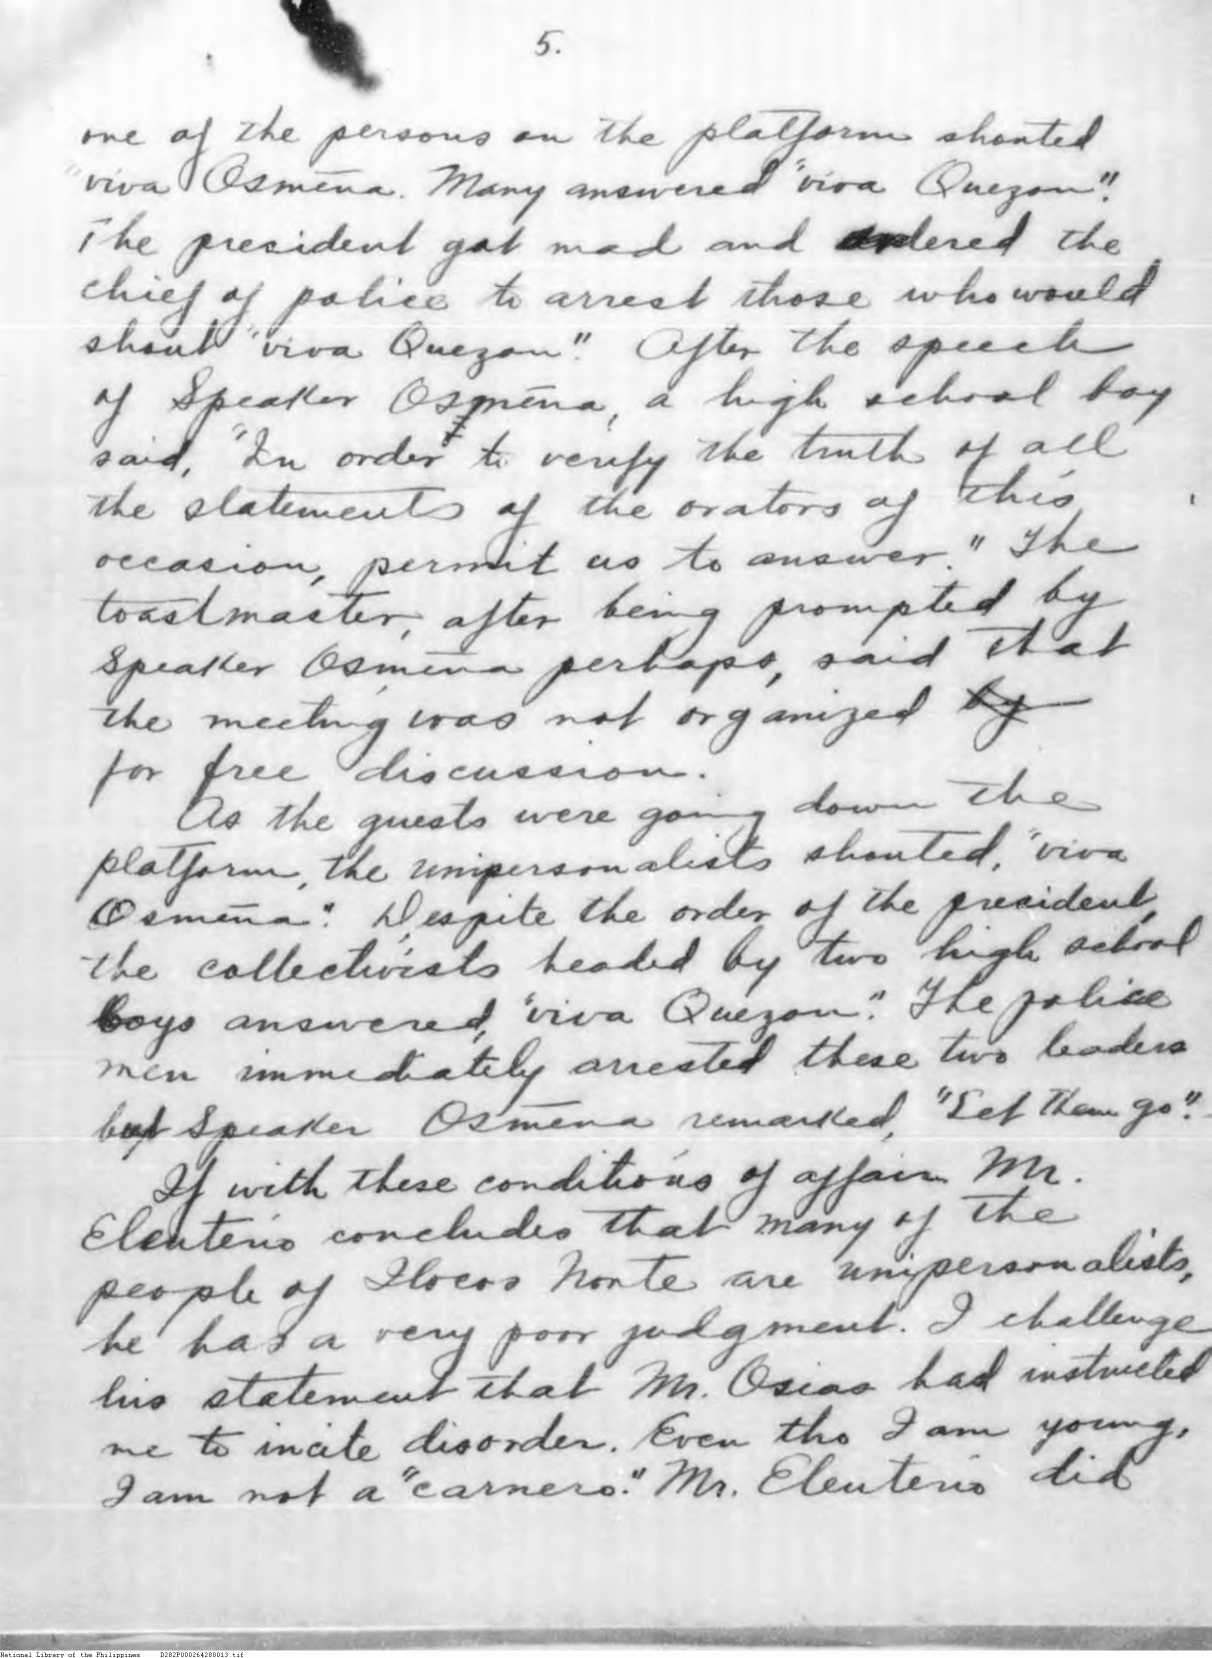 5.
one of the persons on the platform shouted
"viva Osmeña. Many answered "viva Quezon".
The president got mad and ordered the
chief of police to arrest those who would
shout "viva Quezon". After the speech
of Speaker Osmeña, a high school boy
said, "In order to verify the truth of all
the statements of the orators of this
occasion, permit us to answer." The
toastmaster, after being prompted by
Speaker Osmeña perhaps, said that
the meeting was not organized by
for free discussion.
As the guests were going down the
platform, the unipersonalists shouted, "viva
Osmeña". Despite the order of the president,
the collectivists headed by two high school
boys answered, "viva Quezon". The police
men immediately arrested these two leaders
but Speaker Osmeña remarked, "Let them go".
If with these conditions of affair Mr.
Eleuterio concludes that many of the
people of Ilocos Norte are unipersonalists,
he has a very poor judgment. I challenge
his statement that Mr. Osias had instructed
me to incite disorder. Even tho I am young,
I am not a "carnero". Mr. Eleuterio did
National Library of the Philippines D282P000264288013.tif